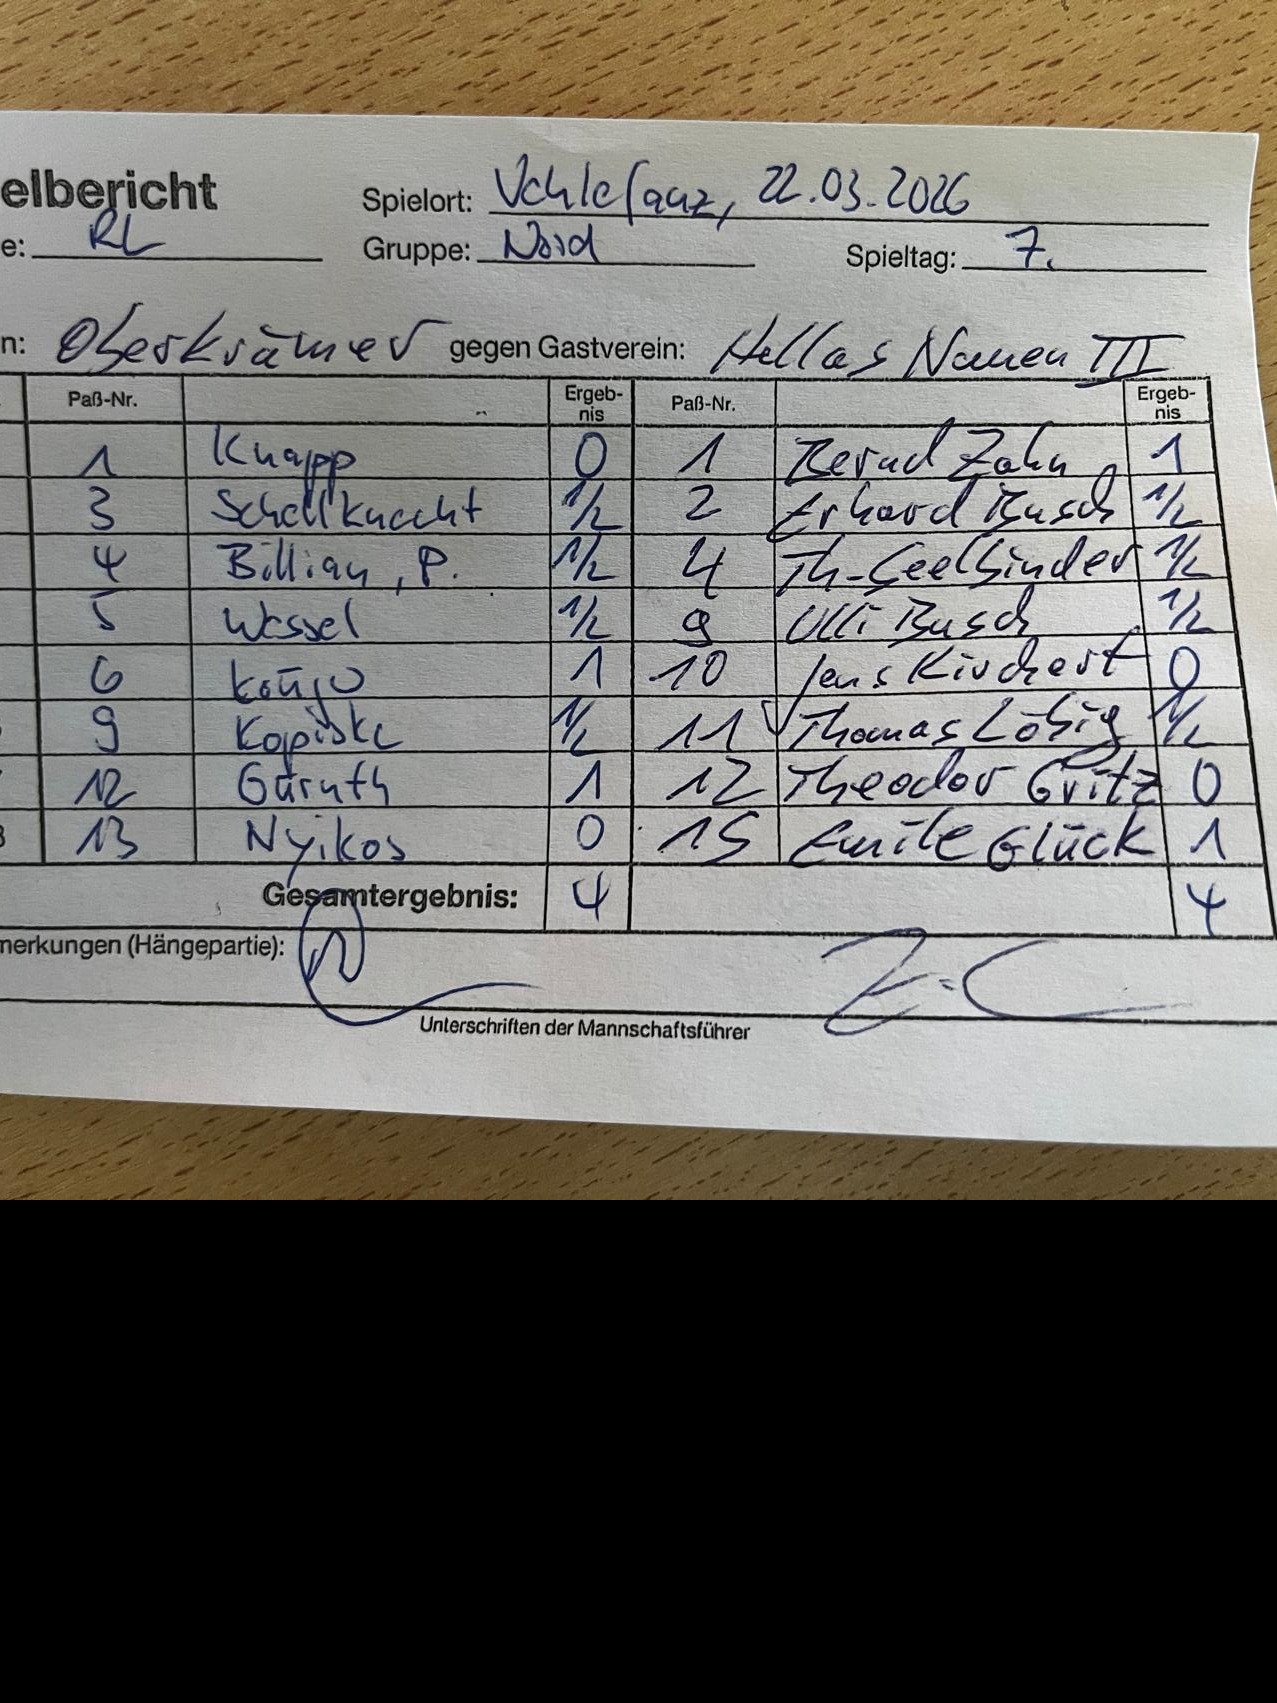 elbericht Spielort: Vehlefanz, 22.03.2026
e: RL Gruppe: Nord Spieltag: 7.
n: Oberkrämer gegen Gastverein: Hellas Nauen III
Paß-Nr. Ergeb-nis Paß-Nr. Ergeb-nis
1 Knapp 0 1 Bernd Zahn 1
3 Schellknecht 1/2 2 Erhard Busch 1/2
4 Billian, P. 1/2 4 Th. Seelbinder 1/2
5 Wessel 1/2 9 Ulli Busch 1/2
6 1 10 Jens Kirchert 0
9 Kopiske 1/2 11 Thomas Löbig 1/2
12 Guruth 1 12 Theodor Gritz 0
13 Nyikos 0 15 Emile Glück 1
Gesamtergebnis: 4 4
merkungen (Hängepartie):
Unterschriften der Mannschaftsführer